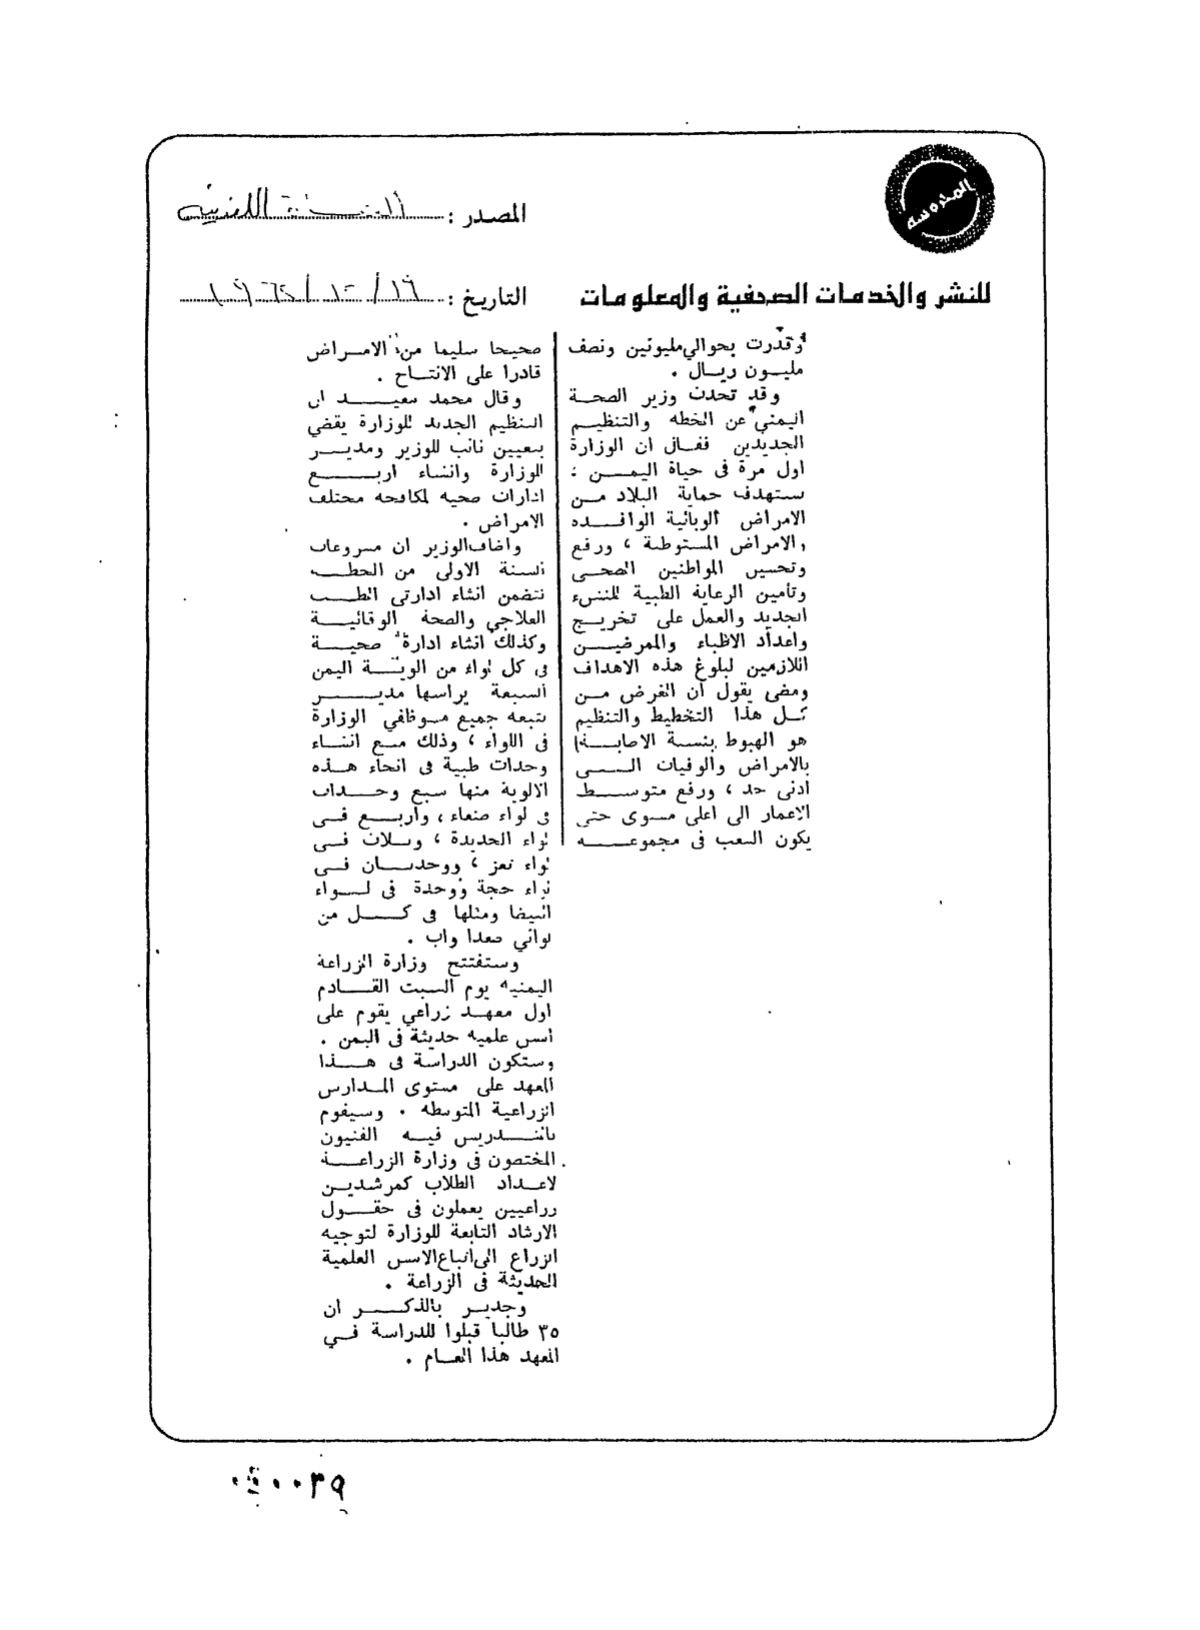 المحروسة
المصدر : اللبنانية
للنشر والخدمات الصحفية والمعلومات
التاريخ :
وقدرت بحوالي مليونين ونصف
مليون ريال .
وقد تحدث وزير الصحة
اليمني عن الخطه والتنظيم
الجديدين فقال ان الوزارة
اول مرة في حياة اليمن :
ستهدف حماية البلاد من
الامراض الوبائية الوافده
والامراض المستوطنة ، ورفع
وتحسين المواطنين الصحي
وتأمين الرعاية الطبية للنشء
الجديد والعمل على تخريج
واعداد الاطباء والممرضين
اللازمين لبلوغ هذه الاهداف
ومضى يقول ان الغرض من
كل هذا التخطيط والتنظيم
هو الهبوط بنسبة الاصابة
بالامراض والوفيات الى
ادنى حد ، ورفع متوسط
الاعمار الى اعلى مستوى حتى
يكون الشعب في مجموعه
صحيحا سليما من الامراض
قادرا على الانتاج .
وقال محمد سعيد ان
التنظيم الجديد للوزارة يقضي
بتعيين نائب للوزير ومدير
للوزارة وانشاء اربع
ادارات صحيه لمكافحه مختلف
الامراض .
واضاف الوزير ان مشروعات
السنة الاولى من الخطة
تتضمن انشاء ادارتي الطب
العلاجي والصحة الوقائية
وكذلك انشاء ادارة صحية
في كل لواء من الوية اليمن
السبعة يراسها مدير
يتبعه جميع موظفي الوزارة
في اللواء ، وذلك مع انشاء
وحدات طبية في انحاء هذه
الالوية منها سبع وحدات
في لواء صنعاء ، واربع في
لواء الحديدة ، وثلاث في
لواء تعز ، ووحدتان في
لواء حجة ووحدة في لواء
البيضا ومثلها في كل من
لوائي صعدا واب .
وستفتتح وزارة الزراعة
اليمنيه يوم السبت القادم
اول معهد زراعي يقوم على
اسس علميه حديثة في اليمن .
وستكون الدراسة في هذا
المعهد على مستوى المدارس
الزراعية المتوسطه . وسيقوم
بالتدريس فيه الفنيون
المختصون في وزارة الزراعة
لاعداد الطلاب كمرشدين
زراعيين يعملون في حقول
الارشاد التابعة للوزارة لتوجيه
الزراع الى اتباع الاسس العلمية
الحديثة في الزراعة .
وجدير بالذكر ان
٣٥ طالبا قبلوا للدراسة في
المعهد هذا العام .